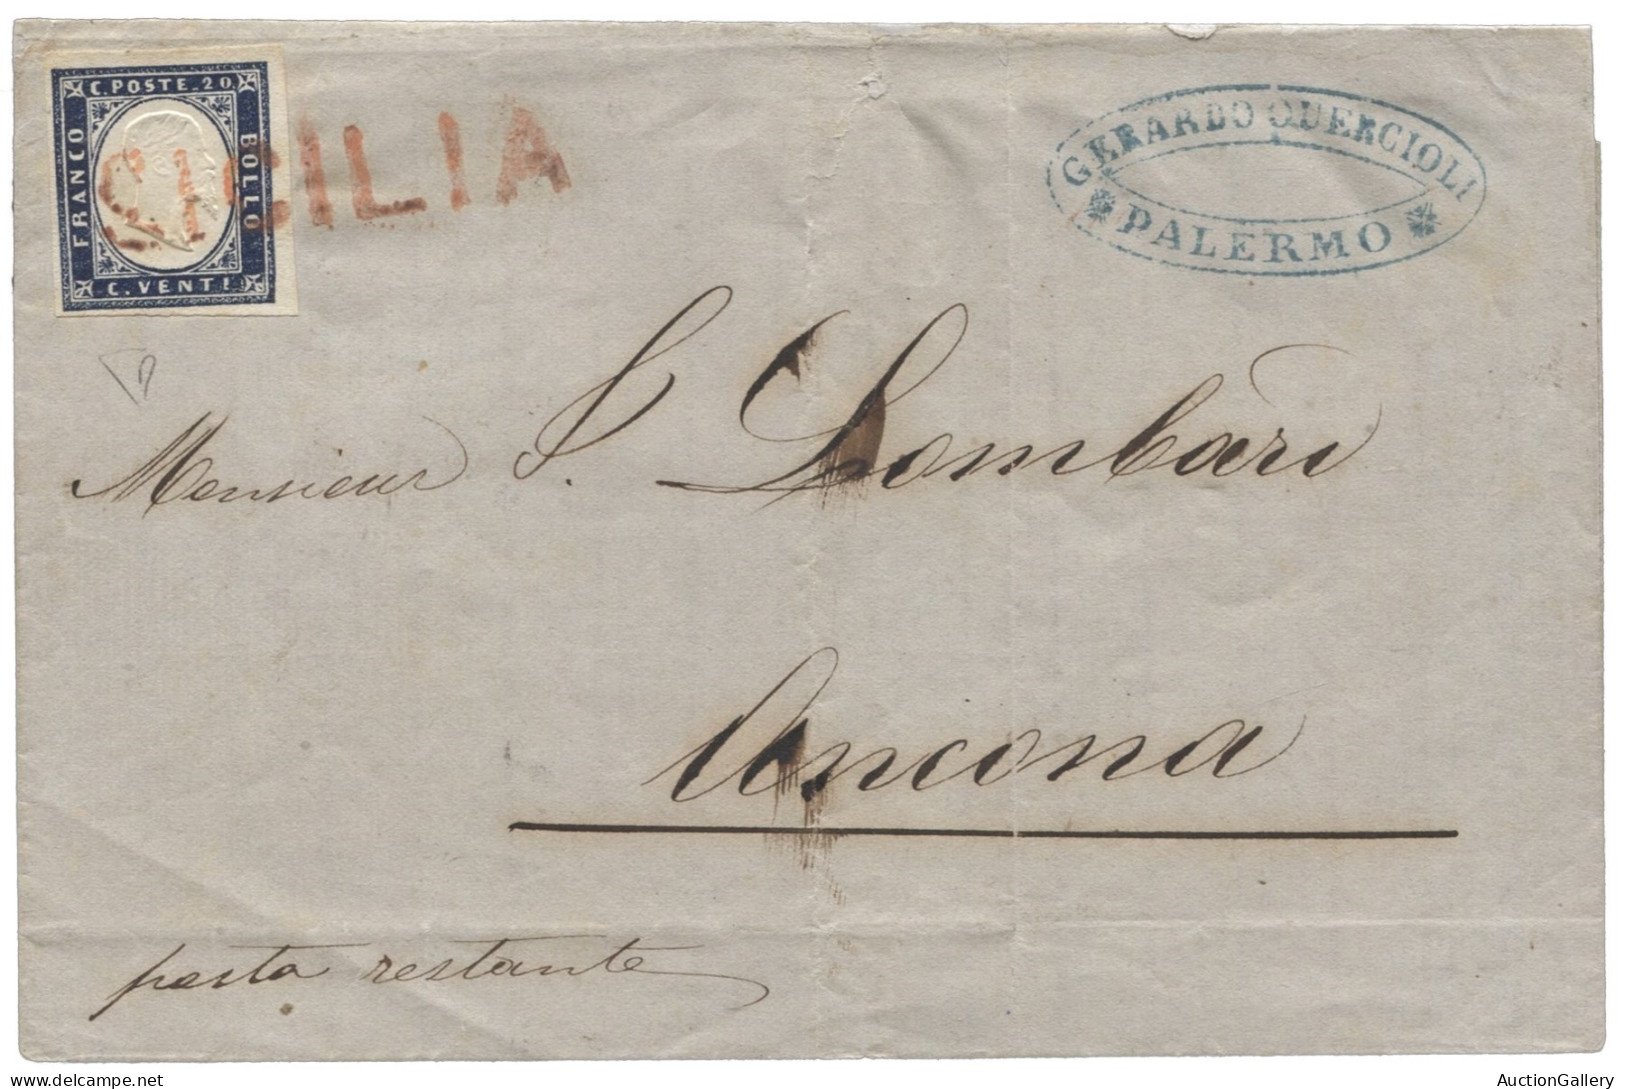 C. POSTE. 20.
FRANCO
BOLLO
C. VENTI
SICILIA
GERARDO QUERCIOLI
PALERMO
Monsieur S. Lombari
Ancona
posta restante
delcampe.net
AuctionGallery